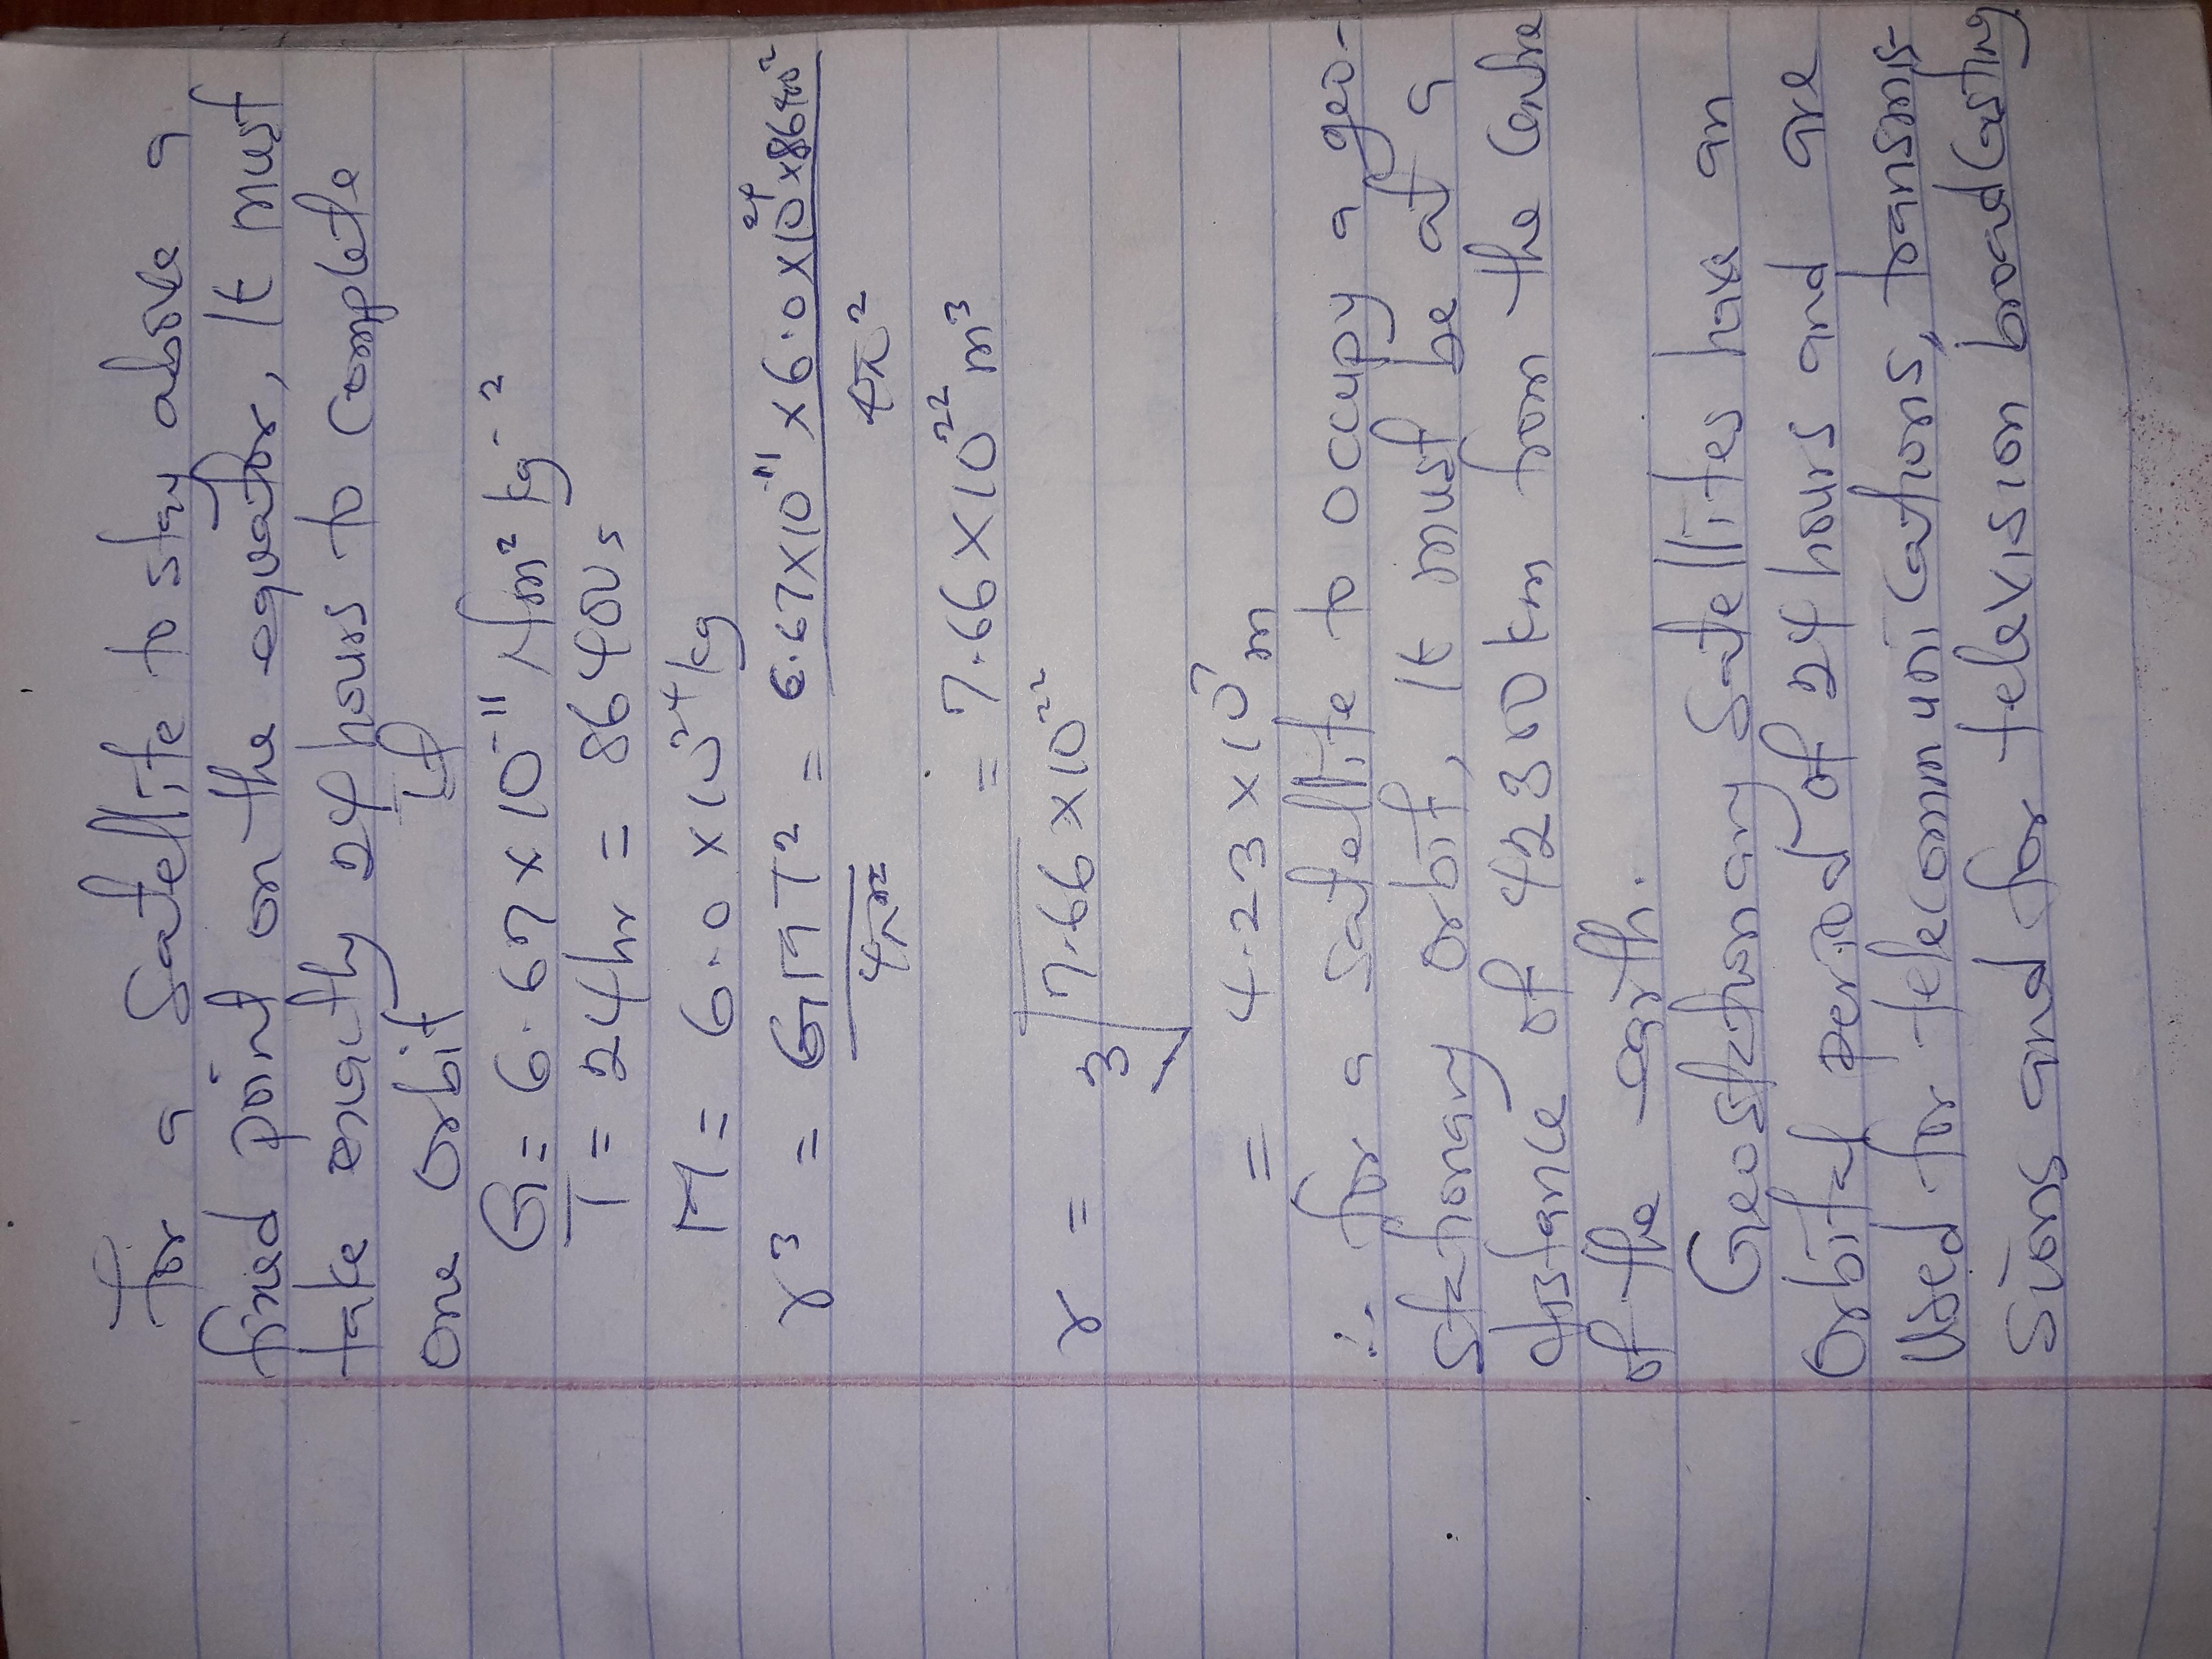 For a Satellite to stay above a
fixed point on the equator, It must
take exactly 24 hours to complete
one orbit
G = 6.67 x 10⁻¹¹ Nm² kg⁻²
T = 24hr = 86400s
M = 6.0 x 10²⁴ kg
r³ = GMT²/4π² = 6.67x10⁻¹¹ x 6.0 x10²⁴ x 86400²/4π²
= 7.66 x 10²² m³
r = ³√7.66 x 10²²
= 4.23 x 10⁷ m
∴ for a satellite to occupy a geo-
stationary orbit, It must be at a
distance of 42300 km from the centre
of the earth.
Geostationary Satellites have an
Orbital period of 24 hours and are
Used for telecommunications, transmis-
sions and for television broadcasting